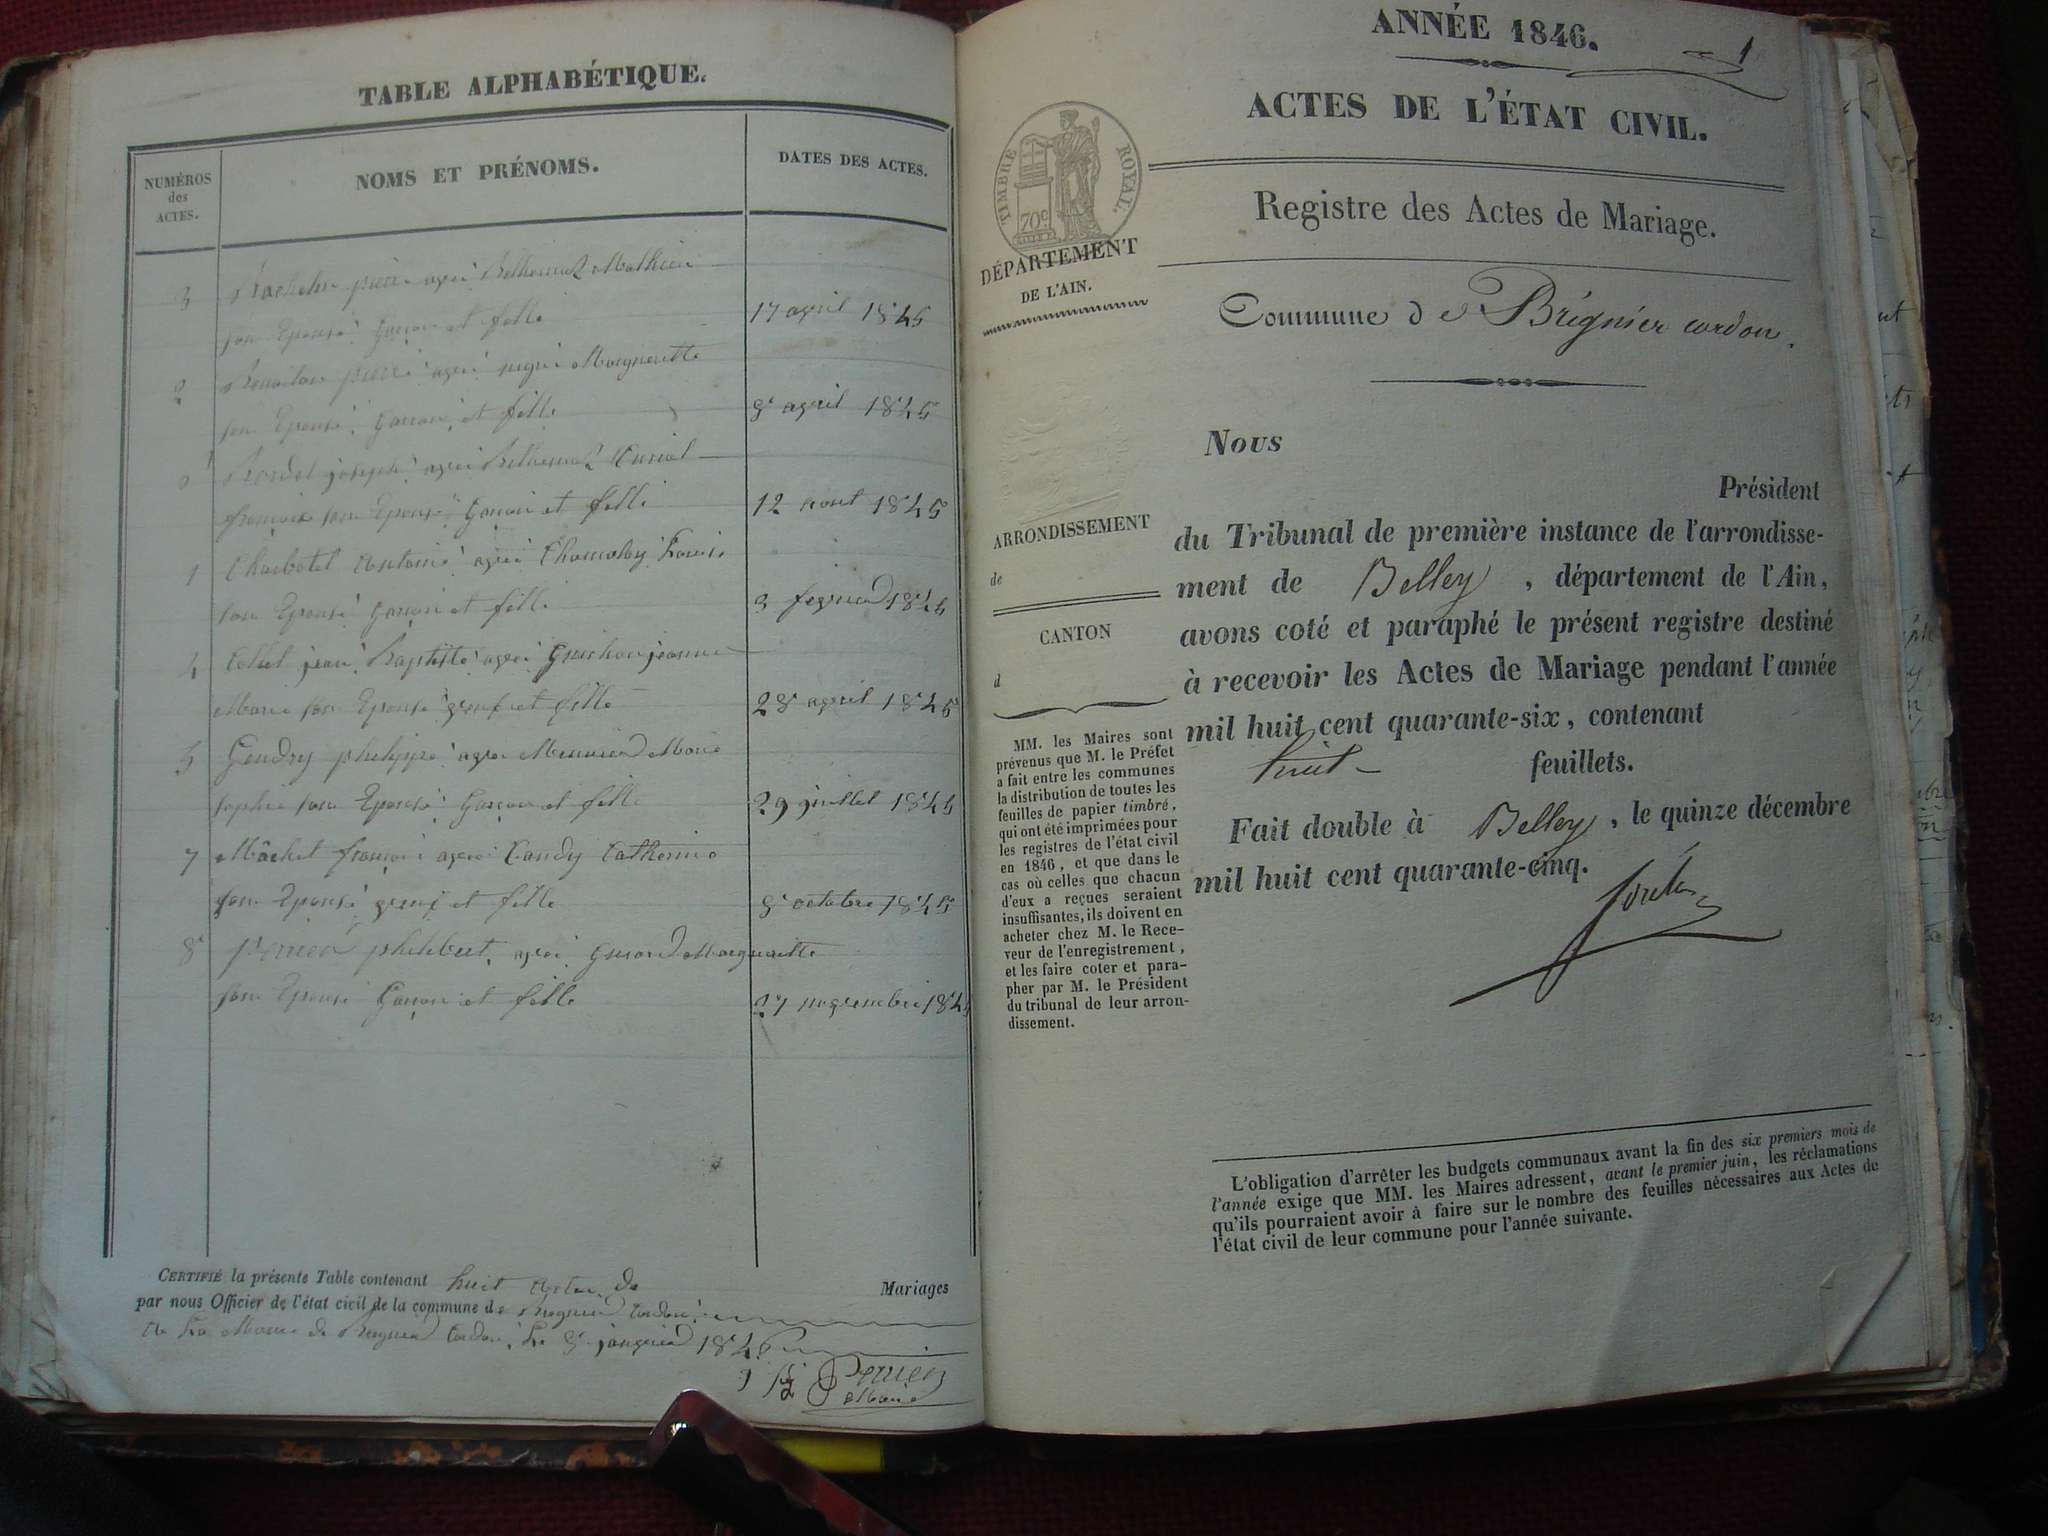 TABLE ALPHABÉTIQUE.
NUMÉROS
des
ACTES.
NOMS ET PRÉNOMS.
DATES DES ACTES.
3 pierre avec Mathieu
son Epouse Garcon et fille 17 avril 1845
2 pierre avec Marguerite
son Epouse Garcon et fille 8 avril 1845
joseph avec
françoise son Epouse Garcon et fille 12 aout 1845
1 Charbotel Antoine avec Louise
son Epouse Garcon et fille 3 fevrier 1845
4 Collet jean Baptiste avec Guichon jeanne
Marie son Epouse veuf et fille 28 avril 1845
5 Gendry philippe avec Meunier Marie
sophie son Epouse Garcon et fille 29 juillet 1845
7 Mâchet françois avec Candy Catherine
son Epouse veuf et fille 8 octobre 1845
8 philibert avec Marguerite
son Epouse Garcon et fille 27 novembre 1845
CERTIFIÉ la présente Table contenant huit actes de Mariages
par nous Officier de l'état civil de la commune de Bregnier Cordon
A La Mairie de Bregnier Cordon, Le janvier 1846
Perrier
Maire
ANNÉE 1846.
1
ACTES DE L'ÉTAT CIVIL.
TIMBRE ROYAL.
70c
DÉPARTEMENT
DE L'AIN.
Registre des Actes de Mariage.
Commune de Brégnier cordon.
Nous
Président
du Tribunal de première instance de l'arrondisse-
ment de Belley, département de l'Ain,
avons coté et paraphé le présent registre destiné
à recevoir les Actes de Mariage pendant l'année
mil huit cent quarante-six, contenant
huit feuillets.
Fait double à Belley, le quinze décembre
mil huit cent quarante-cinq.
ARRONDISSEMENT
de
CANTON
d
MM. les Maires sont
prévenus que M. le Préfet
a fait entre les communes
la distribution de toutes les
feuilles de papier timbré,
qui ont été imprimées pour
les registres de l'état civil
en 1846, et que dans le
cas où celles que chacun
d'eux a reçues seraient
insuffisantes, ils doivent en
acheter chez M. le Rece-
veur de l'enregistrement,
et les faire coter et para-
pher par M. le Président
du tribunal de leur arron-
dissement.
L'obligation d'arrêter les budgets communaux avant la fin des six premiers mois de
l'année exige que MM. les Maires adressent, avant le premier juin, les réclamations
qu'ils pourraient avoir à faire sur le nombre des feuilles nécessaires aux Actes de
l'état civil de leur commune pour l'année suivante.